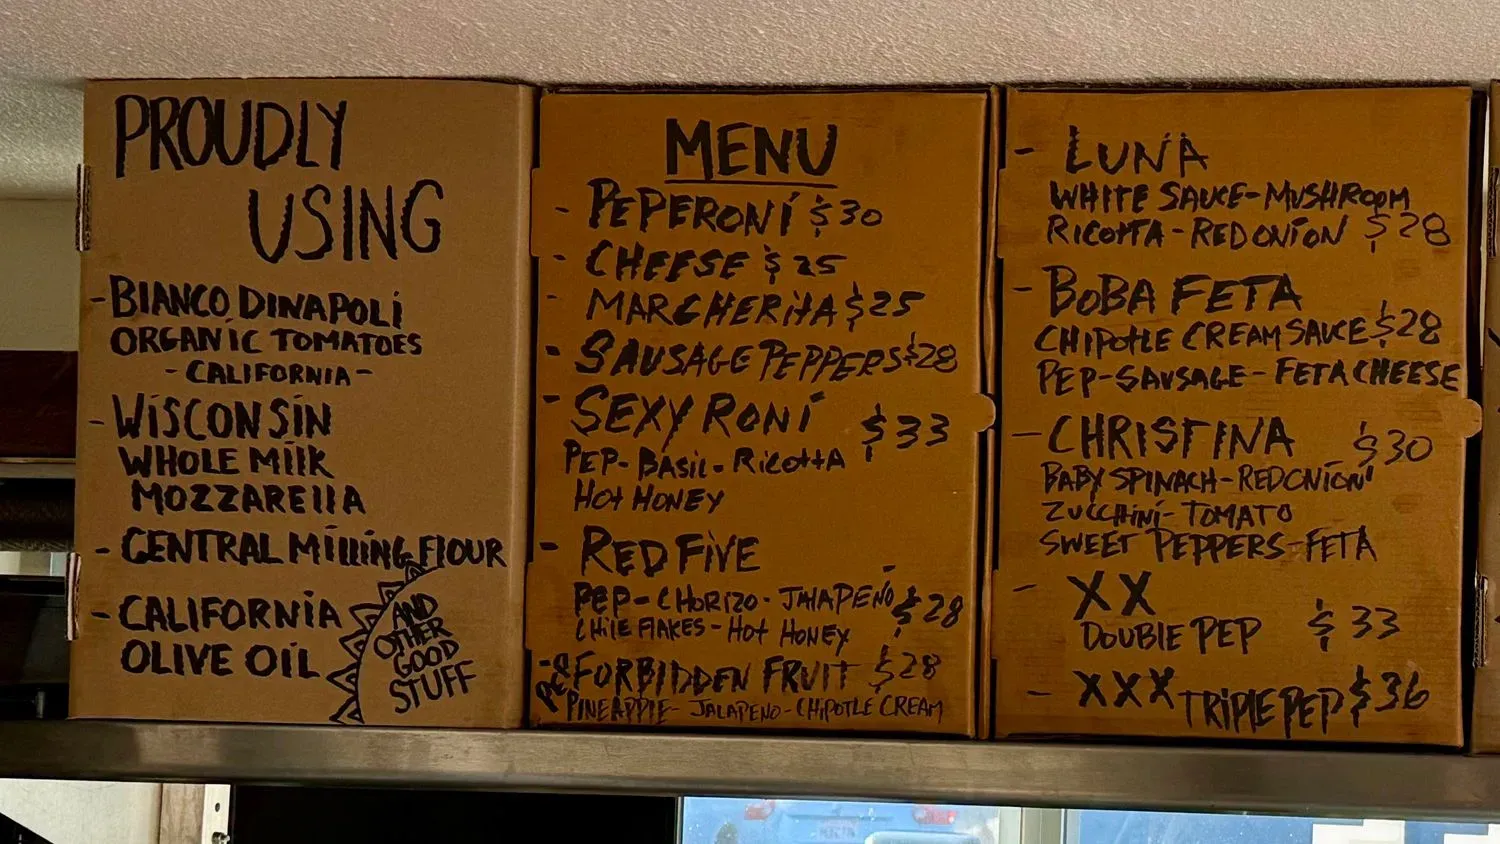 PROUDLY
USING
- BIANCO DINAPOLI
ORGANIC TOMATOES
- CALIFORNIA -
- WISCONSIN
WHOLE MILK
MOZZARELLA
- CENTRAL MILLING FLOUR
- CALIFORNIA
OLIVE OIL
AND
OTHER
GOOD
STUFF
MENU
- PEPERONI $30
- CHEESE $25
- MARGHERITA $25
- SAUSAGE PEPPERS $28
- SEXY RONI $33
PEP - BASIL - RICOTTA
HOT HONEY
- RED FIVE
PEP - CHORIZO - JALAPEÑO $28
CHILE FLAKES - HOT HONEY
- FORBIDDEN FRUIT $28
PINEAPPLE - JALAPENO - CHIPOTLE CREAM
- LUNA
WHITE SAUCE - MUSHROOM
RICOTTA - RED ONION $28
- BOBA FETA
CHIPOTLE CREAM SAUCE $28
PEP - SAUSAGE - FETA CHEESE
- CHRISTINA $30
BABY SPINACH - RED ONION
ZUCCHINI - TOMATO
SWEET PEPPERS - FETA
- XX
DOUBLE PEP $33
- XXX TRIPLE PEP $36